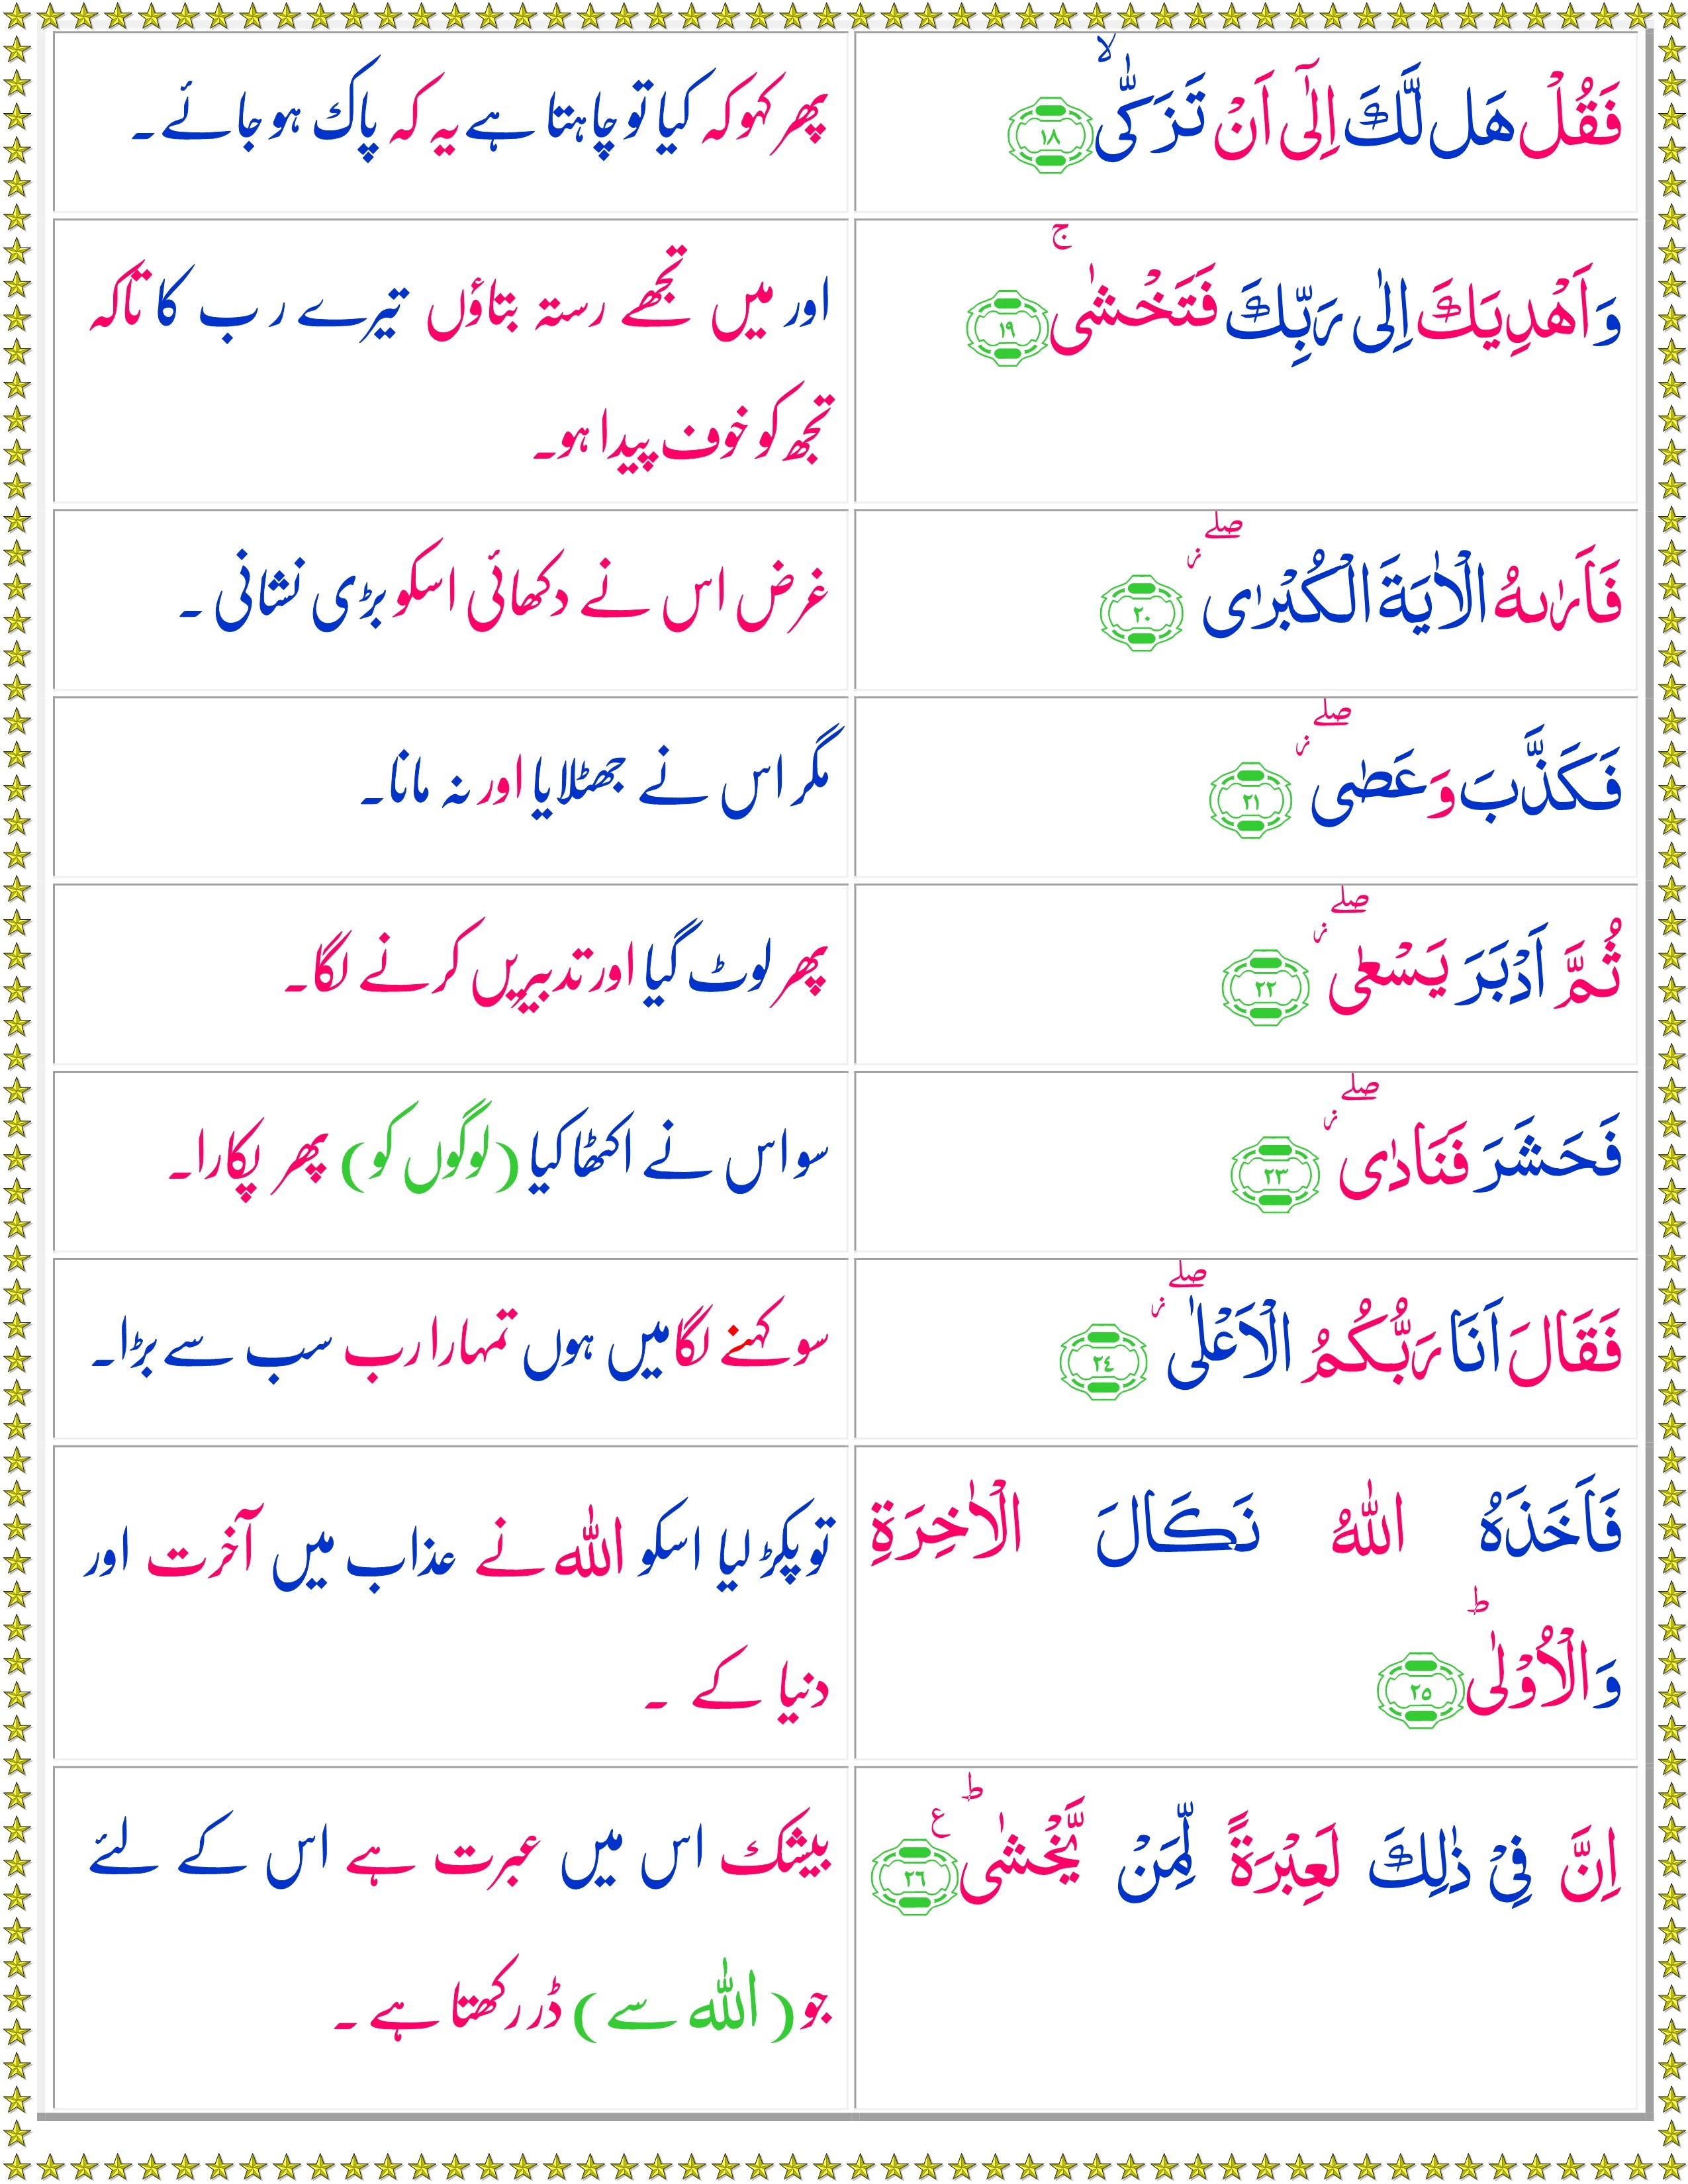 فَقُلْ هَل لَّكَ اِلٰٓى اَنْ تَزَكّٰىۙ ﴿١٨﴾
پھر کہو کہ کیا تو چاہتا ہے یہ کہ پاک ہو جائے۔
وَاَهْدِيَكَ اِلٰى رَبِّكَ فَتَخْشٰىۚ ﴿١٩﴾
اور میں تجھے رستہ بتاؤں تیرے رب کا تاکہ
تجھ کو خوف پیدا ہو۔
فَاَرٰىهُ الْاٰيَةَ الْكُبْرٰى ۖ ﴿٢٠﴾
غرض اس نے دکھائی اسکو بڑی نشانی ۔
فَكَذَّبَ وَعَصٰى ۖ ﴿٢١﴾
مگر اس نے جھٹلایا اور نہ مانا۔
ثُمَّ اَدْبَرَ يَسْعٰى ۖ ﴿٢٢﴾
پھر لوٹ گیا اور تدبیریں کرنے لگا۔
فَحَشَرَ فَنَادٰى ۖ ﴿٢٣﴾
سو اس نے اکٹھا کیا (لوگوں کو) پھر پکارا۔
فَقَالَ اَنَا رَبُّكُمُ الْاَعْلٰى ۖ ﴿٢٤﴾
سو کہنے لگا میں ہوں تمہارا رب سب سے بڑا۔
فَاَخَذَهُ اللّٰهُ نَكَالَ الْاٰخِرَةِ
وَالْاُوْلٰىؕ ﴿٢٥﴾
تو پکڑ لیا اسکو اللہ نے عذاب میں آخرت اور
دنیا کے ۔
اِنَّ فِىْ ذٰلِكَ لَعِبْرَةً لِّمَنْ يَّخْشٰىؕ ع ﴿٢٦﴾
بیشک اس میں عبرت ہے اس کے لئے
جو (اللہ سے) ڈر رکھتا ہے ۔